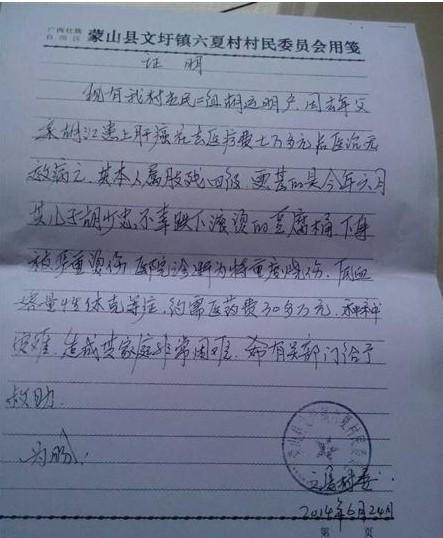 广西壮族
自治区
蒙山县文圩镇六夏村村民委员会用笺
证明
现有我村农民二组胡运明户,因去年父
亲胡江患上肝癌花去医疗费七万多元后医治无
效病亡,其本人属肢残四级,更甚的是今年六月
其儿子胡少忠不幸跌下滚烫的豆腐桶,下身
被严重烫伤,医院诊断为特重度烧伤,低血
容量性休克等症,约需医药费30多万元,种种
困难,造成其家庭非常困难,希有关部门给予
救助.
为盼.
六夏村委
2014年6月24日
第 页